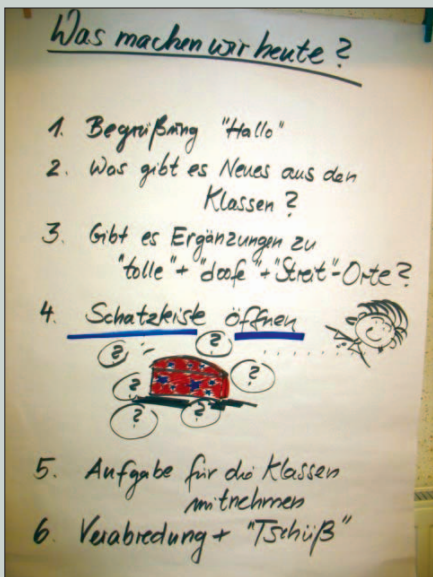 Was machen wir heute?
1. Begrüßung "Hallo"
2. Was gibt es Neues aus den
Klassen?
3. Gibt es Ergänzungen zu
"tolle" + "doofe" + "Streit"-Orte?
4. Schatzkiste öffnen
? ? ? ? ? ?
5. Aufgabe für die Klassen
mitnehmen
6. Verabredung + "Tschüß"